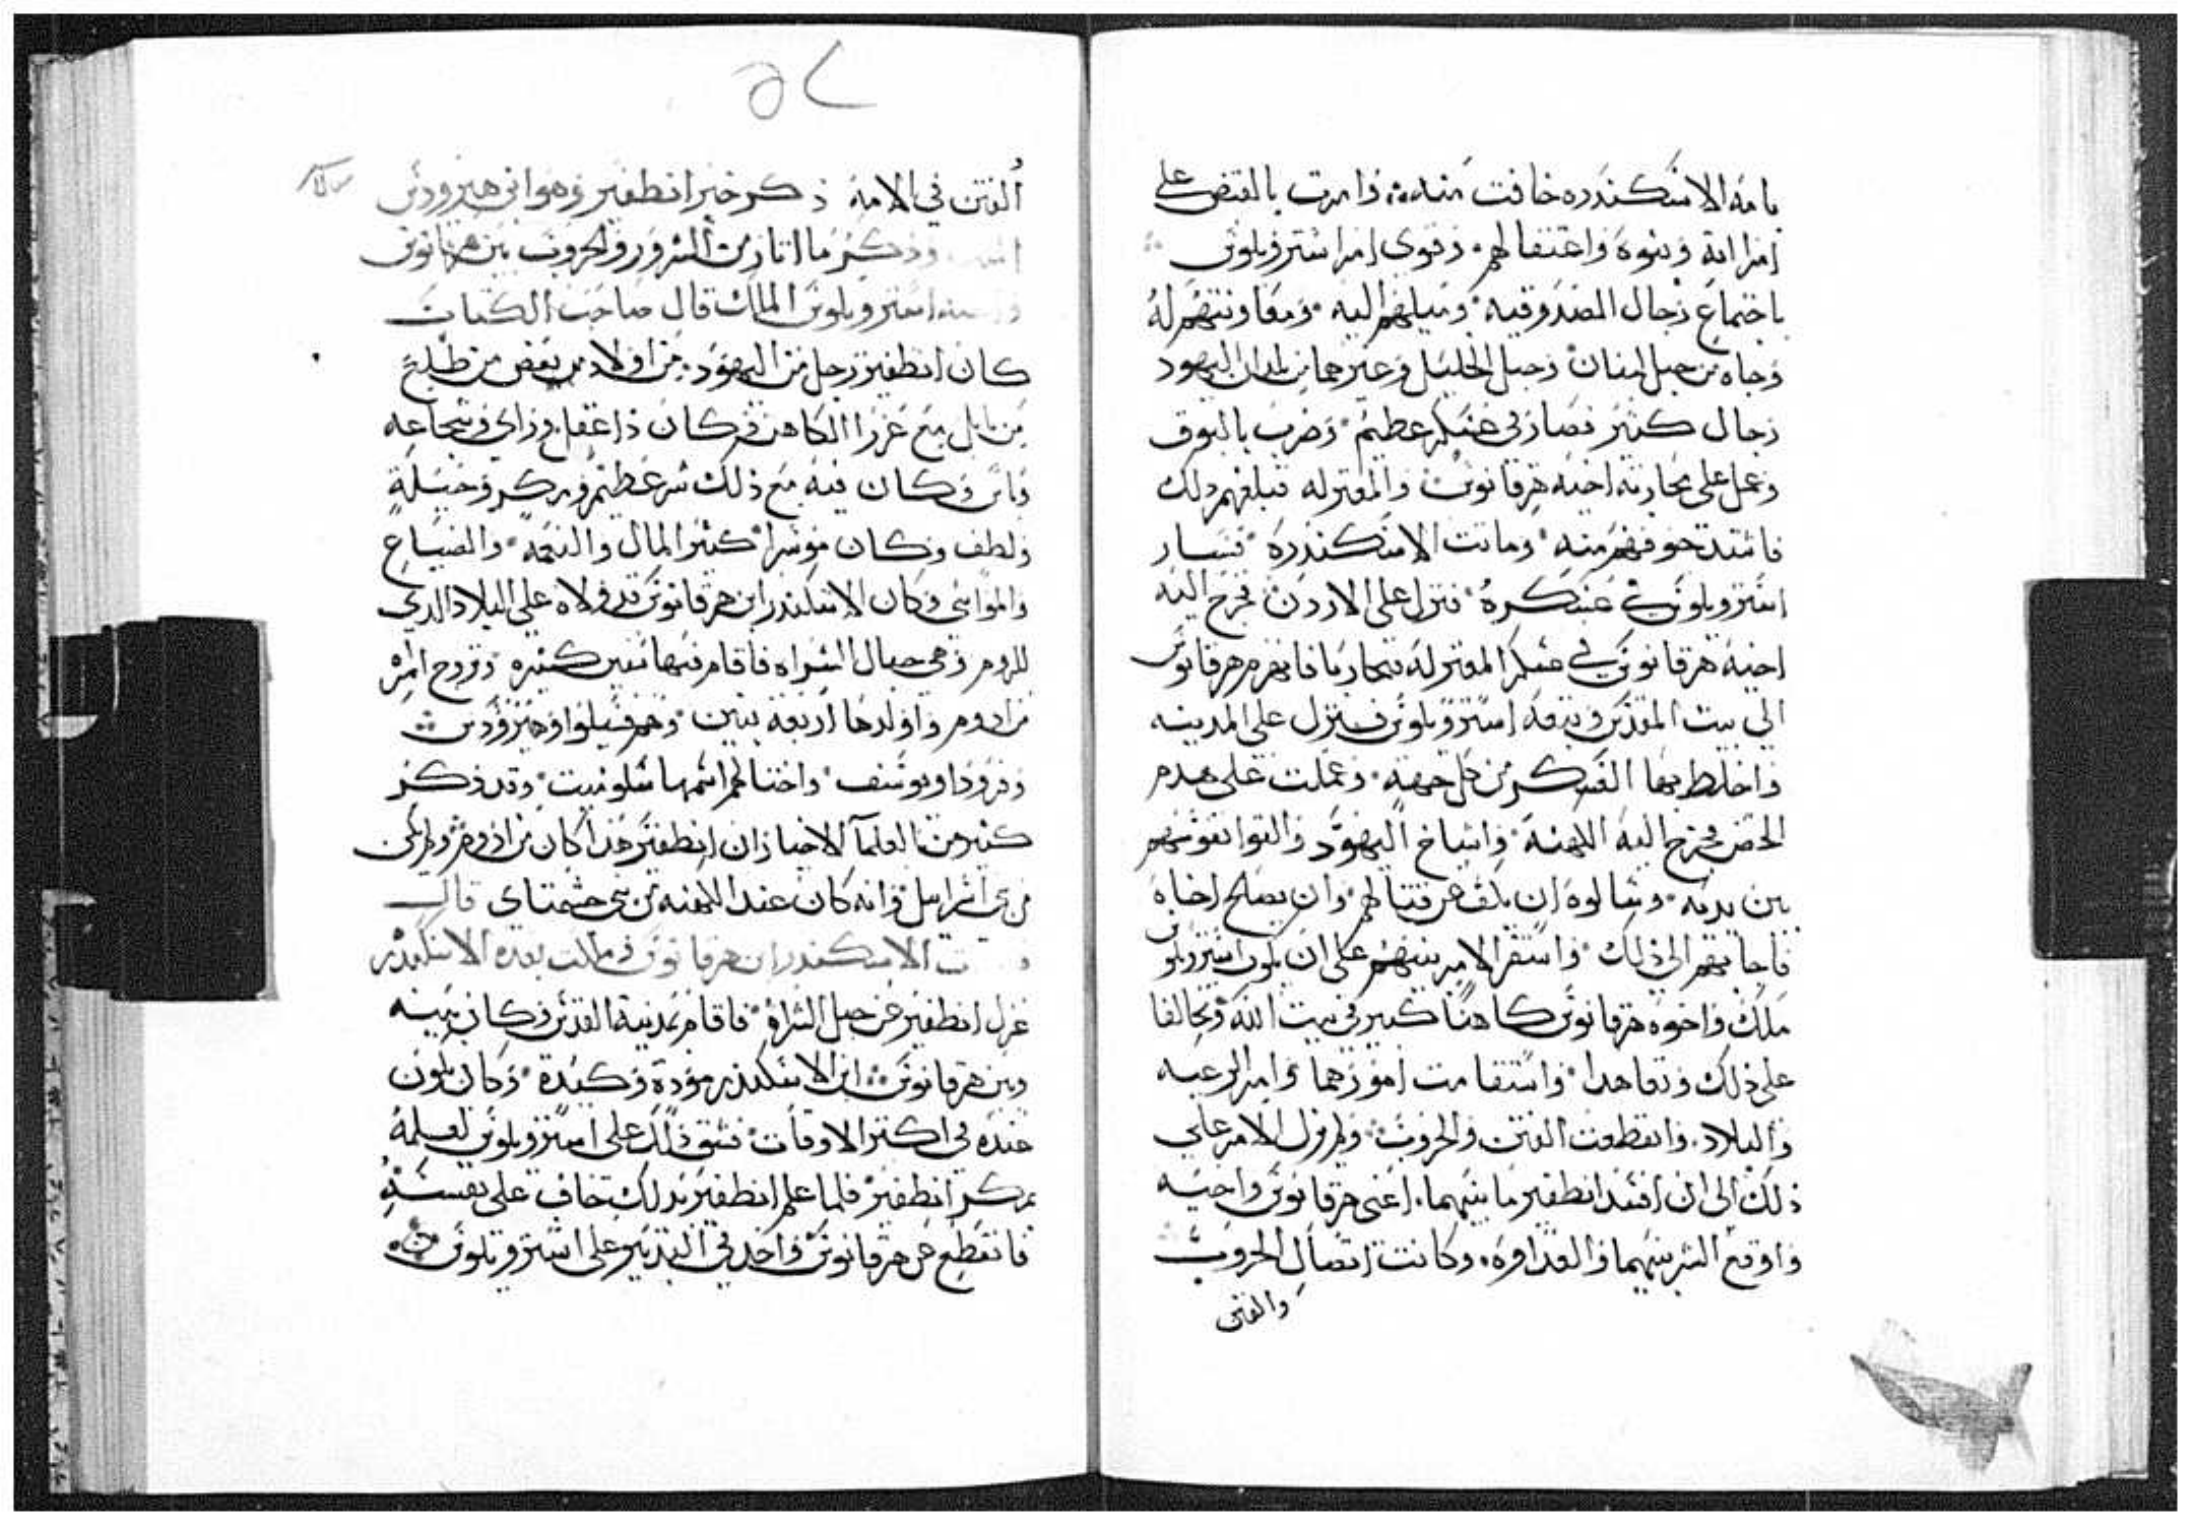 بامه الاسكندره خافت منه وامرت بالقبض على
امراته وبنوه واعتقالهم وقوى امر استروبلوس
باجتماع رجال المصدوقيه وميلهم اليه ومعاونتهم له
وجاه من جبل لبنان وجبل الجليل وغيرهما من بلدان اليهود
رجال كثير فصار في عسكر عظيم وضرب بالبوق
وعمل على محاربة اخيه هرقانوس والمعتزله فبلغهم ذلك
فاشتد خوفهم منه وماتت الاسكندره فسار
استروبلوس في عسكره فنزل على الاردن فخرج اليه
اخيه هرقانوس في عسكر المعتزله فتحاربا فانهزم هرقانوس
الى بيت المقدس وتبعه استروبلوس فنزل على المدينه
واحاط بها العسكر من كل جهه وعملت على هدم
الحصن فخرج اليه الكهنه واشياخ اليهود والقوا نفوسهم
بين يديه وسالوه ان يكف عن قتالهم وان يصلح اخاه
فاجابهم الى ذلك واستقر الامر بينهم على ان يكون استروبلوس
ملك واخوه هرقانوس كاهنا كبير في بيت الله وتحالفا
على ذلك وتعاهدا واستقامت امورهما وامر الرعيه
والبلاد وانقطعت الفتن والحروب ولم يزل الامر على
ذلك الى ان افسد انطفير ما بينهما اعني هرقانوس واخيه
واوقع الشر بينهما والعداوه وكانت اتصال الحروب
والفتن
٥٢
الفتن في الامه ذكر خبر انطفير وهو ابى هيرودس
وذكر ما اثار من الشرور والحروب بين هرقانوس
استروبلوس الملك قال صاحب الكتاب
كان انطفير رجل من اليهود من اولاد بعض من طلع
من بابل مع عزرا الكاهن وكان ذا عقل وراى وشجاعه
وباس وكان فيه مع ذلك شر عظيم ومكر وحيلة
ولطف وكان موسرا كثير المال والنعمه والضياع
والمواشي وكان الاسكندر ابن هرقانوس قد ولاه على البلاد الذي
للروم وهي جبال الشراه فاقام فيها سنين كثيره وتزوج امره
من ادوم واولدها اربعة بنين وهم فسيلوا وهيرودس
وفرودا ويوسف واختا لهم اسمها شلوميت وقد ذكر
كثير من العلما الاخبار ان انطفير هذا كان من ادوم ولم يكن
من بني اسرايل وانه كان عند الكهنه من بني حشمناي قال
الاسكندر ابن هرقانوس وملكت بعده الاسكندره
عزل انطفير عن جبل الشراه فاقام بمدينة القدس وكان بينه
وبين هرقانوس ابن الاسكندر مودة وكيده وكان يكون
عنده في اكثر الاوقات فشق ذلك على استروبلوس لعلمه
بمكر انطفير فلما علم انطفير بذلك خاف على نفسه
فانقطع عن هرقانوس واخد في التدبير على استروبلوس